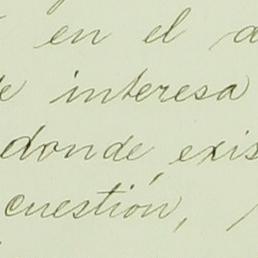 en el a
de interesa
donde, exis
cuestión,